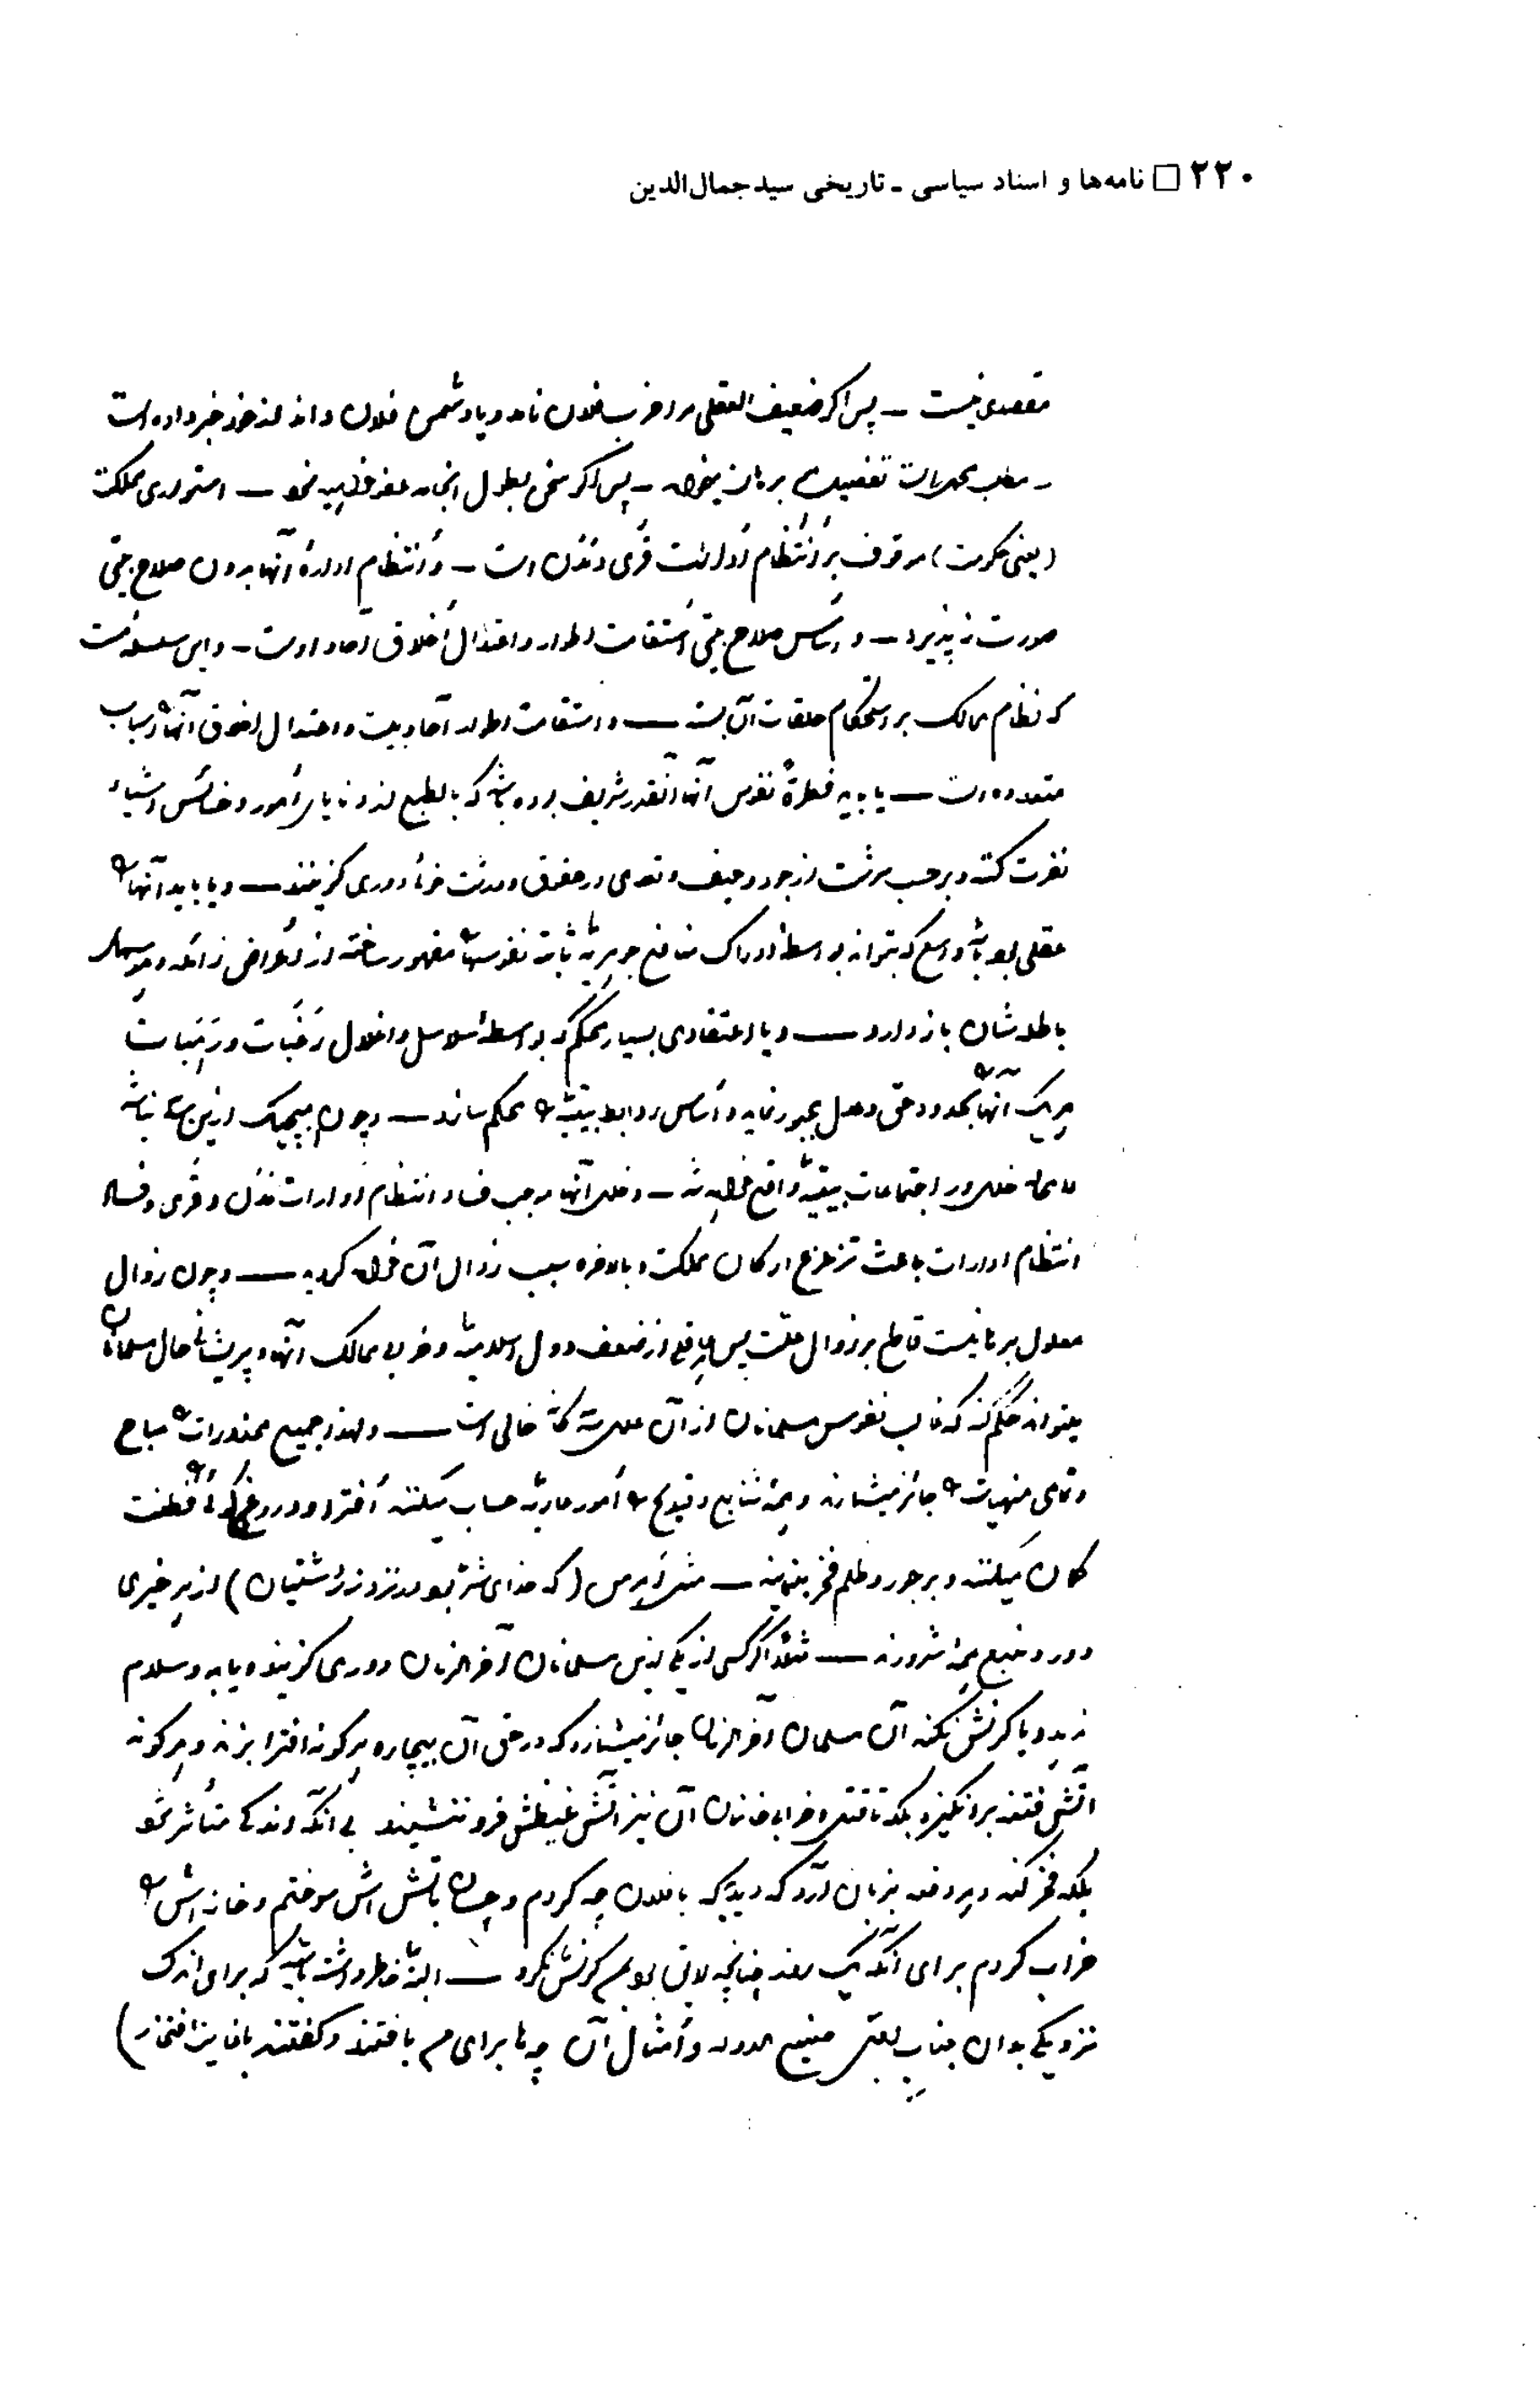 ۲۲۰ □ نامه‌ها و اسناد سیاسی ـ تاریخی سید جمال‌الدین
مقصدی نیست ـ پس اگر ضعیف العقلی مرا حزب فلان نامد و یا دشمن فلان داند از خود خبر داده است
ـ مطلب تفصیلش برهان میخواهد ـ پس اگر سخن بطول انجامد عفو خواهید نمود ـ استواری مملکت
(یعنی حکومت) موقوف بر اُنتظام اُدارات قُری و مُدُن است ـ و اُنتظام ادارهٔ آنها بدون صلاح بیتی
صورت نه پذیرد ـ و اساس صلاح بیتی اُستقامت اطوار و اعتدال اُخلاق آحاد اوست ـ و این سلسله‌ایست
که نظام ممالک بر استحکام حلقات آن بسته ـ و استقامت اطوار آحاد بیت و اعتدال اخلاق آنها را اسباب
متعدده است ـ یا باید فطرةً نفوس آنها آنقدر شریف بوده باشد که بالطبع از دنایای اُمور و خسائس اشیاء
نفرت کنند و برحسب سرشت از جور و حیف و تعدی در حقوق دوری گزینند ـ و یا باید آنها را
عقلی بوده باشد واسع که بتواند بواسطهٔ ادراک منافع جوهریهٔ ثابته نفوس را مقهور ساخته از اُغراض زائله
باطله شان باز دارد ـ و یا اعتقادی بسیار محکم که بواسطهٔ سلاسل و اغلال رَغَبات و رَهَبات
هریک آنها را بحدود حق و عدل مجبور نماید و اُساس روابط بیتیّه را محکم سازد ـ و چون هیچیک ازین سه نباشد
لامحاله خلل در اجتماعات بیتیّه واقع خواهد شد ـ و خلل آنها موجب فساد انتظام ادارات مُدُن و قُری و فساد
انتظام ادارات باعث تزعزع ارکان مملکت و بالاخره سبب زوال آن خواهد گردید ـ و چون زوال
معلول برهانیست قاطع بر زوال علت پس هر عاقلی از ضعف دول اسلامیّه و خرابی ممالک آنها و پریشانی حال مسلمانان
میتواند حُکم کند که غالب نفوس مسلمانان از آن علل سه گانه خالی است ـ و لهذا جمیع محذورات را مباح
و تمامی منهیات را جائز میشمارند و همهٔ شنایع و قبایح را اُمور عادیّه حساب میکنند اُفترا و دروغگوئی را فطنت
گمان میکنند و بر جور و ظلم فخر مینمایند ـ مثل اهرمن (که خدای شر بود نزد زردشتیان) از هر خیری
دور و منبع همهٔ شرورند ـ مثلاً اگر کسی از یکی ازین مسلمانان آخر الزمان دوری گزیند و یا بد و سلام
ندهد و یا کرنش نکند آن مسلمان آخر الزمان جائز میشمارد که در حق آن بیچاره هرگونه افترا بزند و هرگونه
آتش فتنه برانگیزد بلکه تا قتل و خرابی خانمان آن نیز آتش غیظش فرو ننشیند بی آنکه اندکی متأثر شود
بلکه فخر کند و هر دفعه بزبان آرد که دیدید که با فلان چه کردم و چسان بآتش اش سوختم و خانه اش را
خراب کردم برای آنکه یک دفعه چنانچه لائق بود بمن کرنش نکرد ـ البته خاطر داشته باشید که برای اندک
نزدیکی بدان جناب یعنی صنیع الدوله و اُمثال آن چه ها برای من بافتند و گفتند با نهایت افتخار)